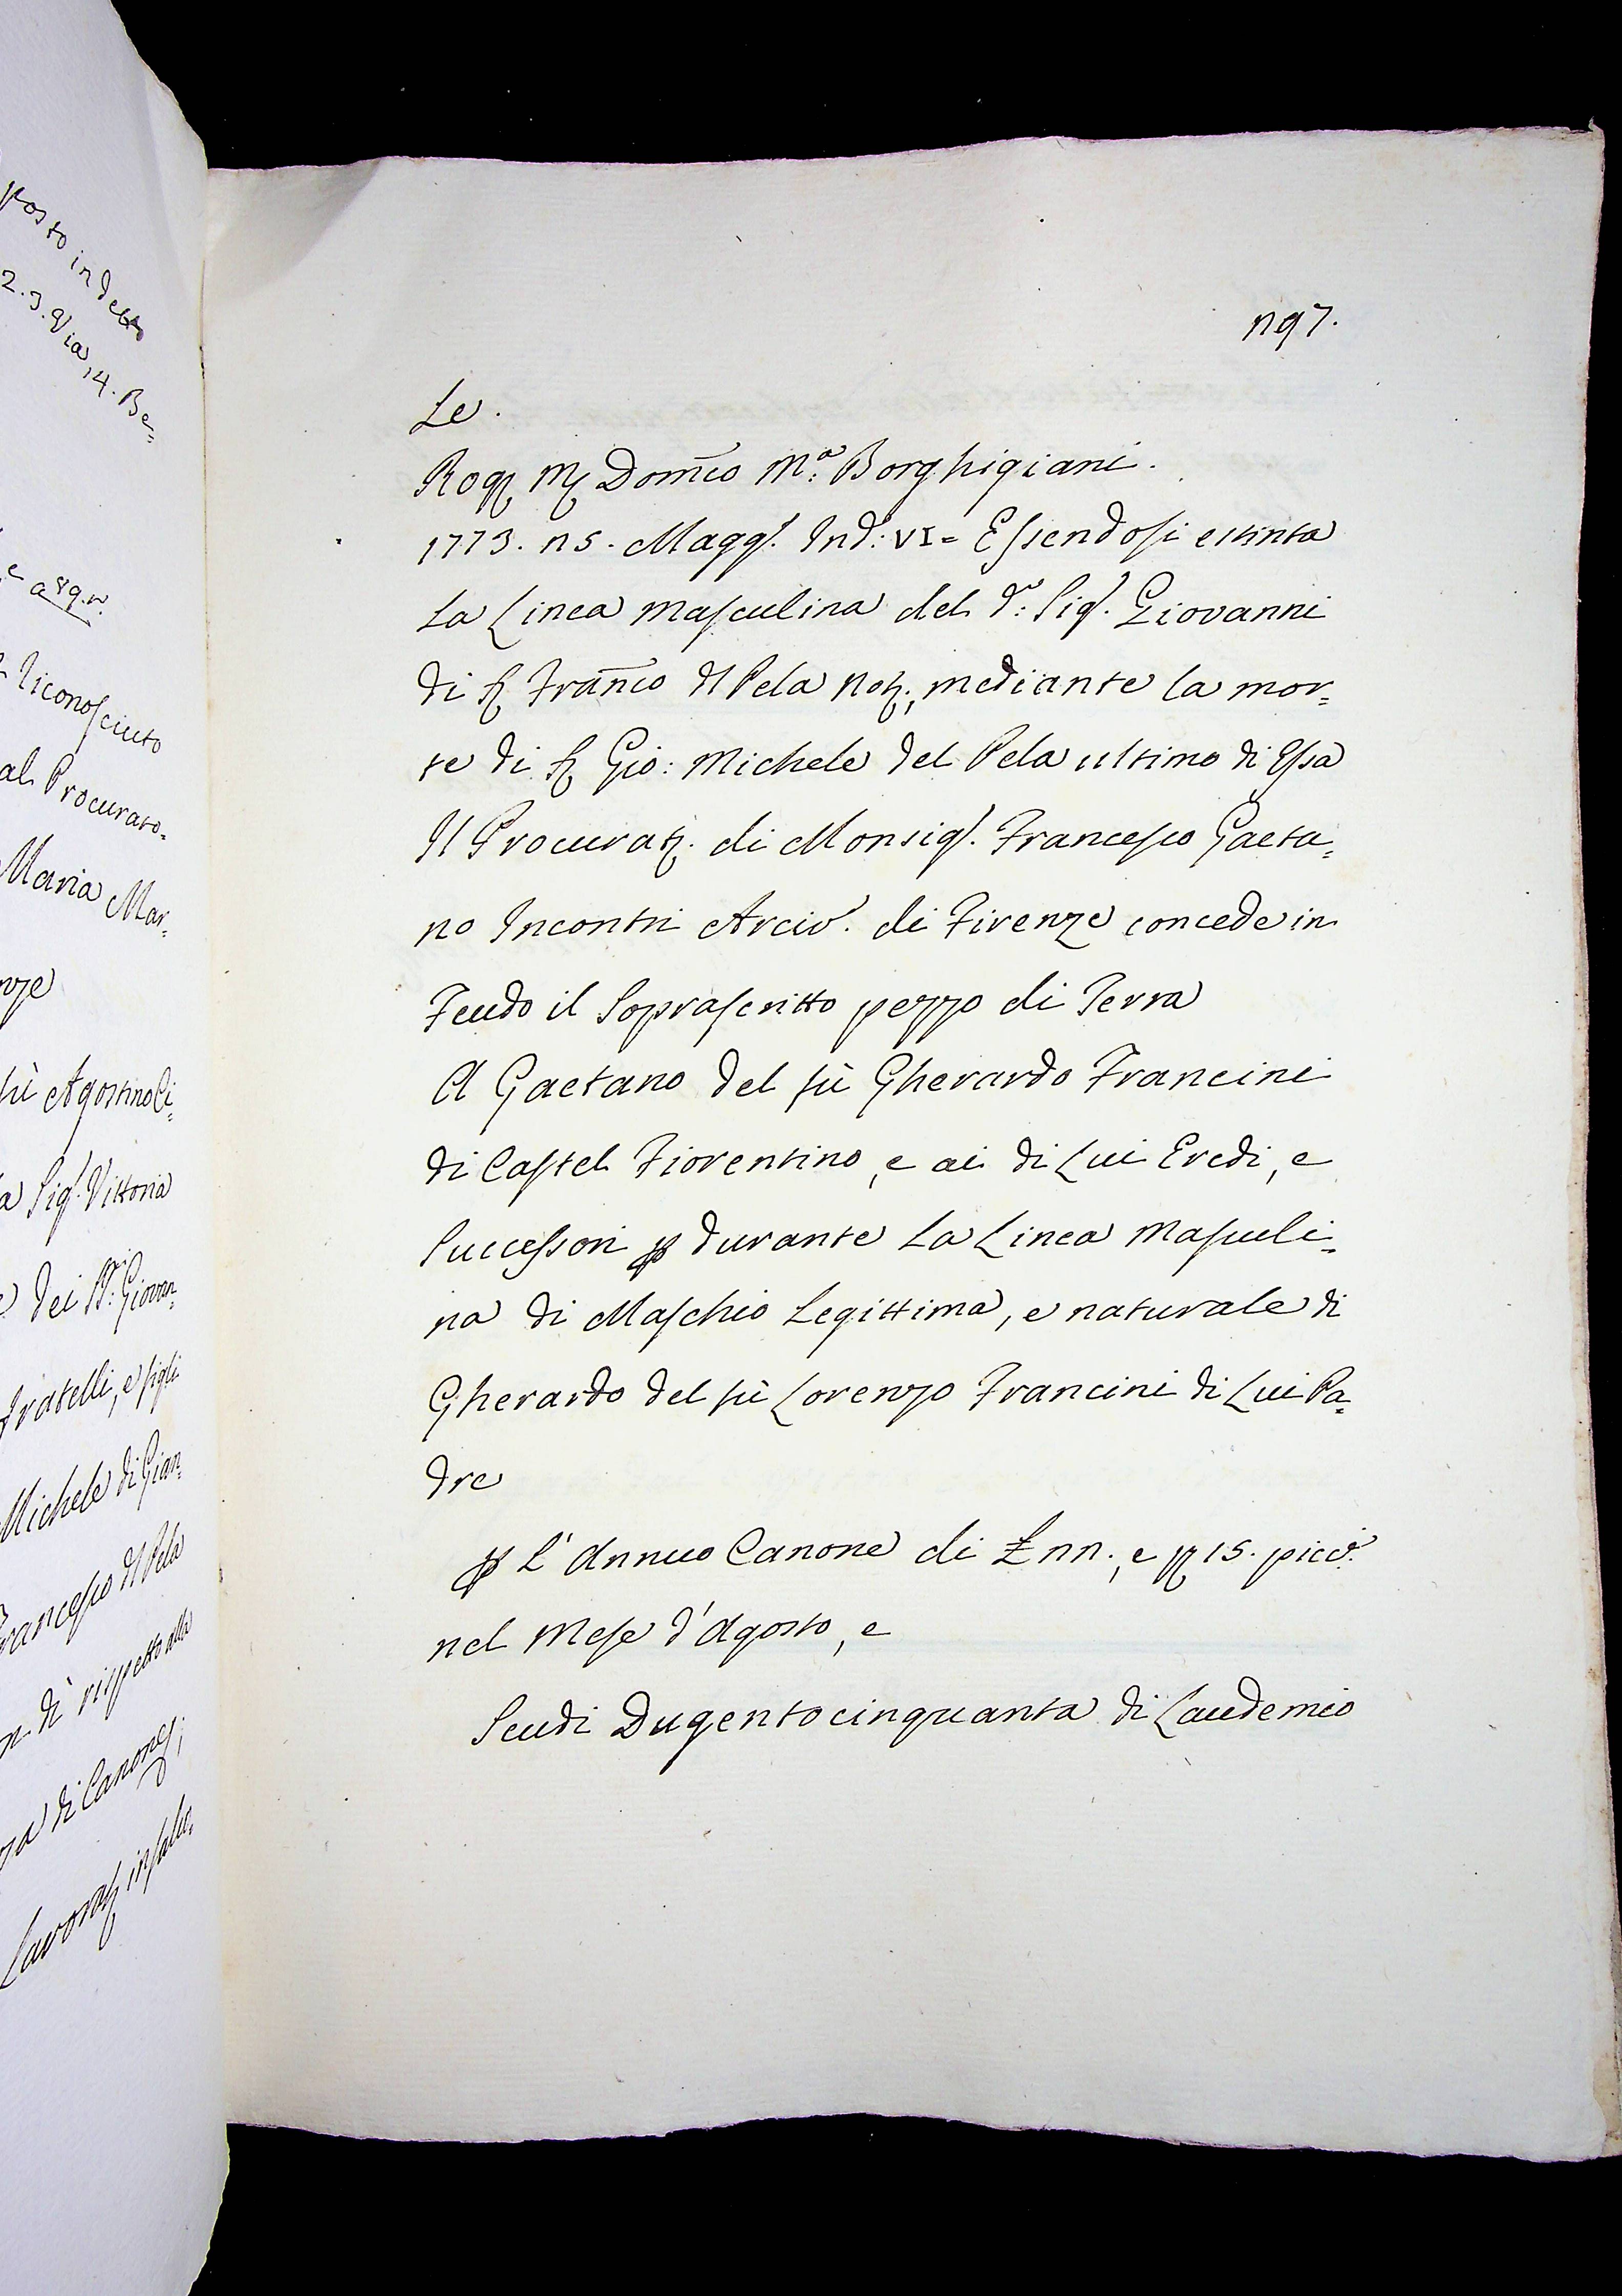 posto in detto
2. 3. Via, 4. Be=
riconosciuto
al Procurato=
Maria Mar=
nze
fù Agostino Ci=
a Sig.ʳ Vittoria
e dei SS.ʳⁱ Giovan=
fratelli, e figli
Michele di Gian=
Francesco del Pela
n di rispetto alla
za di Canonej;
Lavorat. in salu=
n97.
Le.
Rog. M. Dom̃co M.ª Borghigiani.
1773. n5. Magg. Ind: VI= Essendosi estinta
La Linea Masculina del d.º Sig.ʳ Giovanni
di S. Frañco del Pela Not., mediante la mor=
te di S. Gio: Michele del Pela ultimo di Essa
Il Procurat. di Monsig.ʳ Francesco Gaeta=
no Incontri Arciv.º di Firenze concede in
Feudo il Soprascritto pezzo di Terra
A Gaetano del fù Gherardo Francini
di Castel Fiorentino, e ai di Lui Eredi, e
Successori ꝑ durante La Linea Masculi=
na di Maschio Legittima, e naturale di
Gherardo del fù Lorenzo Francini di Lui Pa=
dre
ꝑ L' Annuo Canone di £ nn., e ꝑ 15. picc.ⁱ
nel Mese d'Agosto, e
Scudi Dugentocinquanta di Laudemio